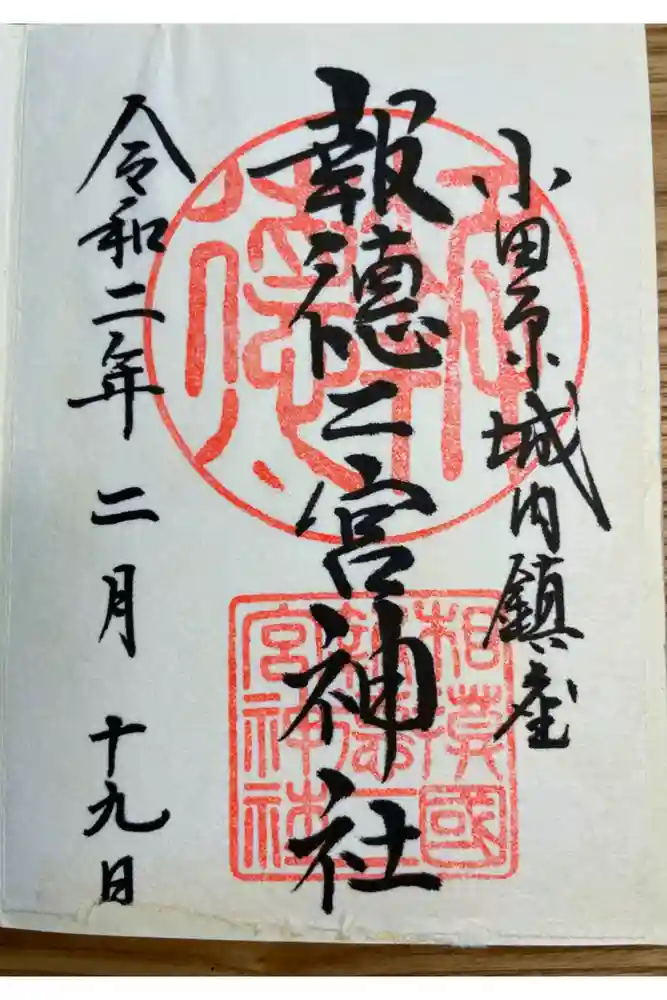 小田原城内鎮座
報徳二宮神社
相模國
報徳二
宮神社
令和二年 二月 十九日